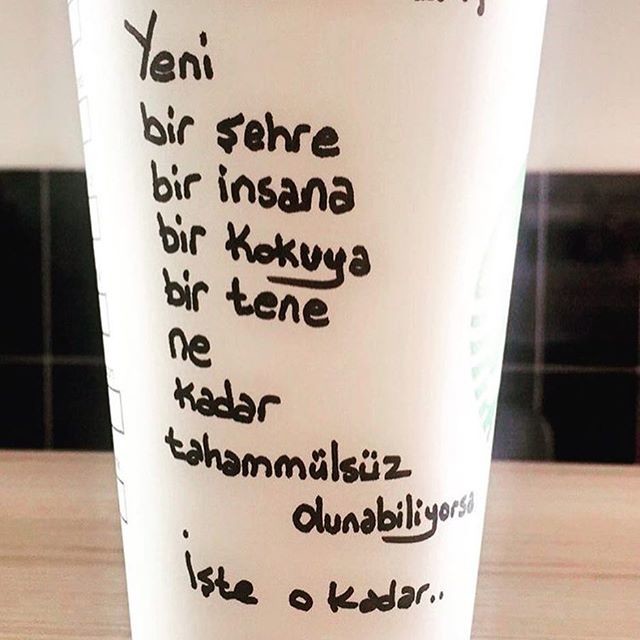 Yeni
bir şehre
bir insana
bir kokuya
bir tene
ne
kadar
tahammülsüz
olunabiliyorsa
İşte o kadar..